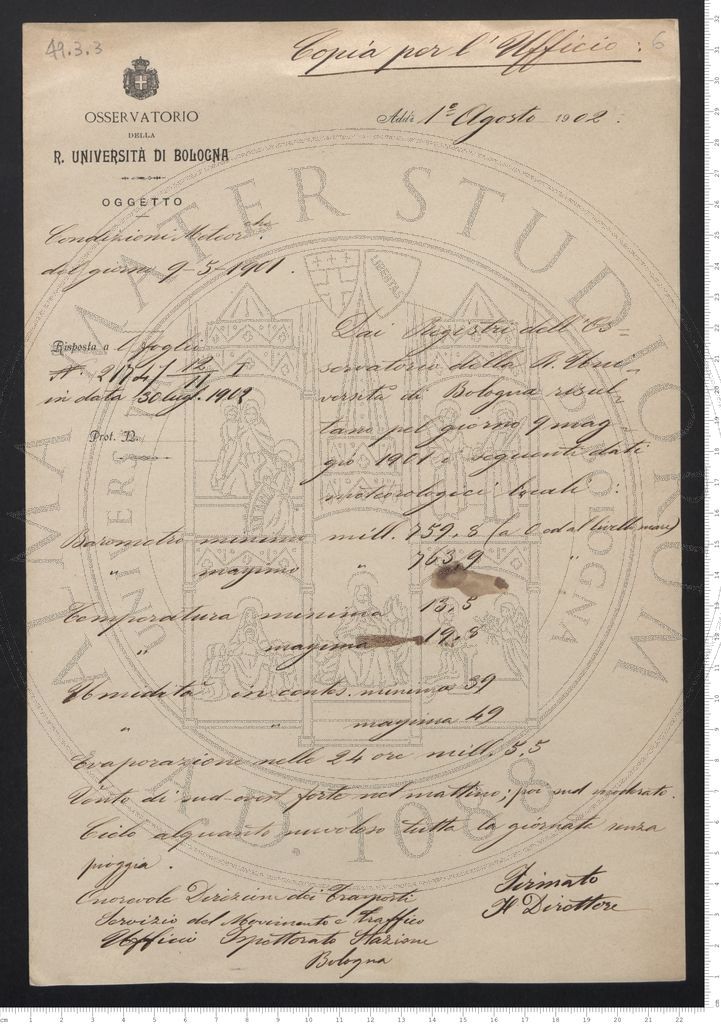 49.3.3
Copia per l'Ufficio:
6
OSSERVATORIO
DELLA
R. UNIVERSITÀ DI BOLOGNA
Addì 1° Agosto 1902.
OGGETTO
Condizioni Meteor.che
del giorno 9-5-1901.
Risposta a l foglio
N. 2174/ 12/11 I
in data 30 lug. 1902
Prot. N.
Dai Registri dell'Os=
servatorio della R. Uni-
versità di Bologna risul-
tano pel giorno 9 mag-
gio 1901 i seguenti dati
meteorologici locali:
Barometro minimo mill. 759,8 (a 0 ed al livello mare)
" massimo " 763,9 "
Temperatura minima 13,5
" massima 19,8
Umidità in cents. minima 39
" " massima 49
Evaporazione nelle 24 ore mill. 5,5
Vento di sud-ovest forte nel mattino; poi sud moderato.
Cielo alquanto nuvoloso tutta la giornata senza
pioggia.
Firmato
Il Direttore
Onorevole Direzione dei Trasporti
Servizio del Movimento e traffico
Ufficio Ispettorato Stazione
Bologna
ALMA MATER STUDIORUM
UNIVERSITÀ
BOLOGNA
LIBERTAS
A.D. 1088